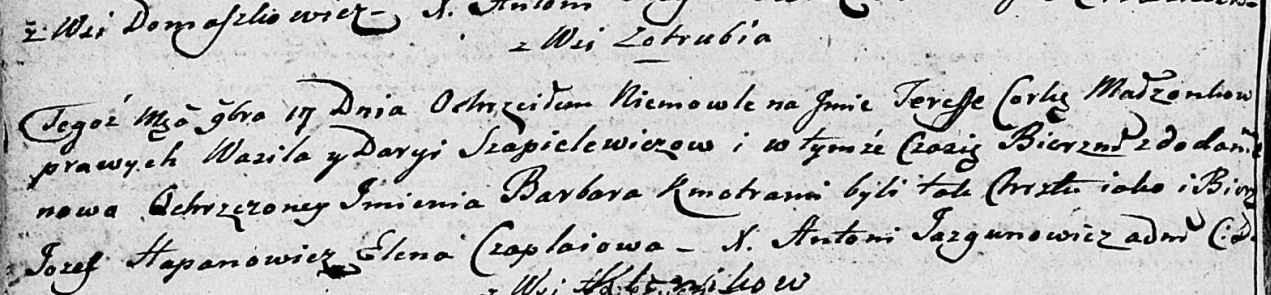 z Wsi Domaszkowicz – X. Antoni
z Wsi Zotrubia
Tegoż Mscā 9bra 17 Dnia Ochrzciłem Niemowle na Jmie Teresse Corkę Małżonkow
prawych Wasila y Daryi Szapielewiczow i w tymże Czasię Bierzm z dodanie
nowo Ochrzczoney Jmienia Barbara Kmotrami byli tak Chrztu iako i Bierz
Jozef Hapanowicz Elena Czaplaiowa – X. Antoni Jazgunowicz adm
z Wsi